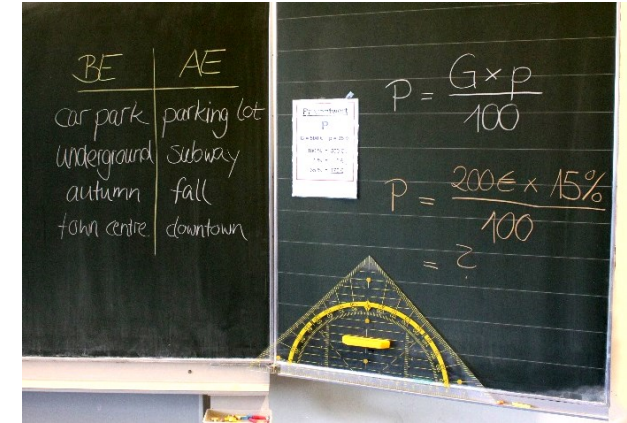 BE AE
car park parking lot
underground subway
autumn fall
town centre downtown
P
P = G×p
100
P = 200€ × 15%
100
= ?